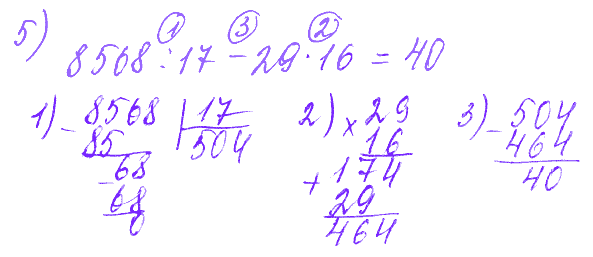 5) 8568 : 17 − 29 · 16 = 40
① ③ ②
1) − 8568 | 17
85 504
− 68
68
0
2) × 29
16
+ 174
29
464
3) − 504
464
40